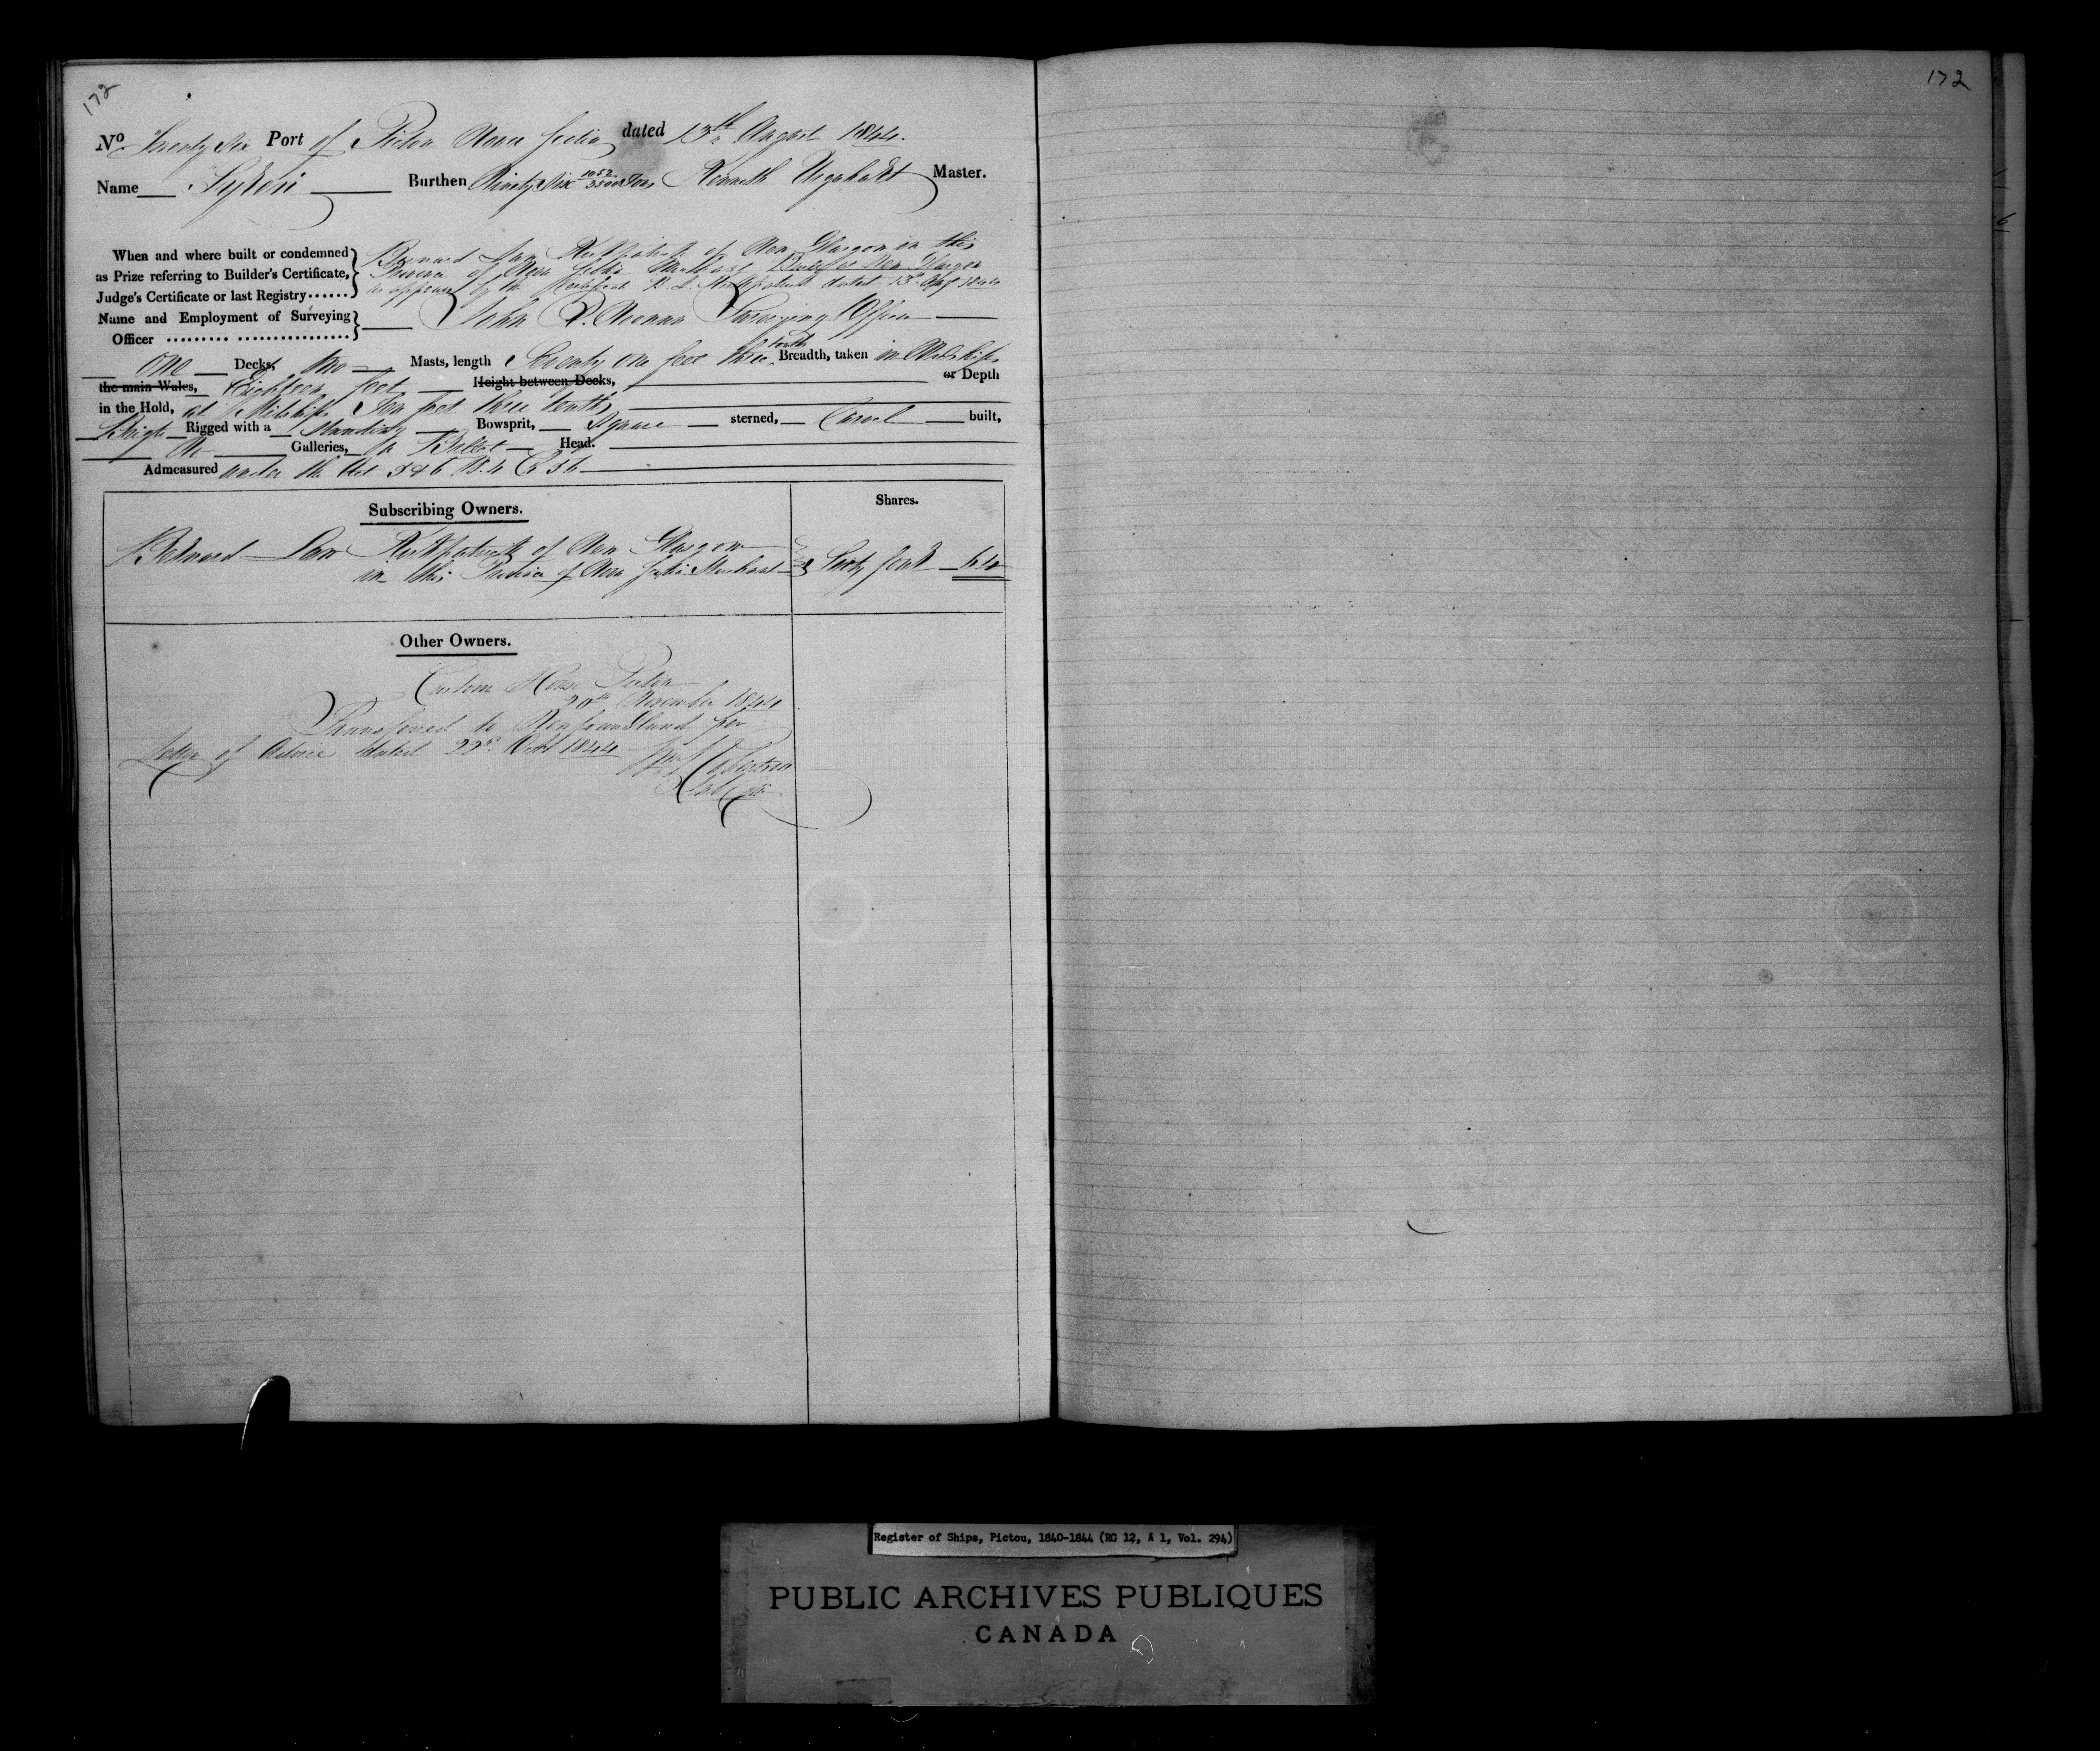 172
172
No Twenty Six Port of Pictou Nova Scotia dated 13th August 1844.
Name Burthen Ninety Six 1052/3500 Tons Kenneth Urquhart Master.
When and where built or condemned
as Prize referring to Builder's Certificate,
Judge's Certificate or last Registry......
Kirkpatrick of New Glasgow in this
Province of Nova Scotia Merchant Built at New Glasgow
as appears by the Certificate Kirkpatrick dated 13th Augt 1844
Name and Employment of Surveying
Officer
John Surveying Officer
One Decks, two Masts, length Seventy one feet three tenths Breadth, taken in Midships
the main Wales, Eighteen feet Height between Decks, or Depth
in the Hold, at Midships Ten feet three tenths
Brigt Rigged with a standing Bowsprit, Square sterned, Carvel built,
No Galleries, a Billet Head.
Admeasured under the Act 5 & 6 W. 4 C 56
Subscribing Owners.
Shares.
Kirkpatrick of New Glasgow
in this Province of Nova Scotia Merchant
Sixty four 64
Other Owners.
Custom House Pictou
November 1844
Transferred to Newfoundland per
Letter of Advice dated 22nd Octr 1844
Register of Ships, Pictou, 1840-1844 (RG 12, A 1, Vol. 294)
PUBLIC ARCHIVES PUBLIQUES
CANADA